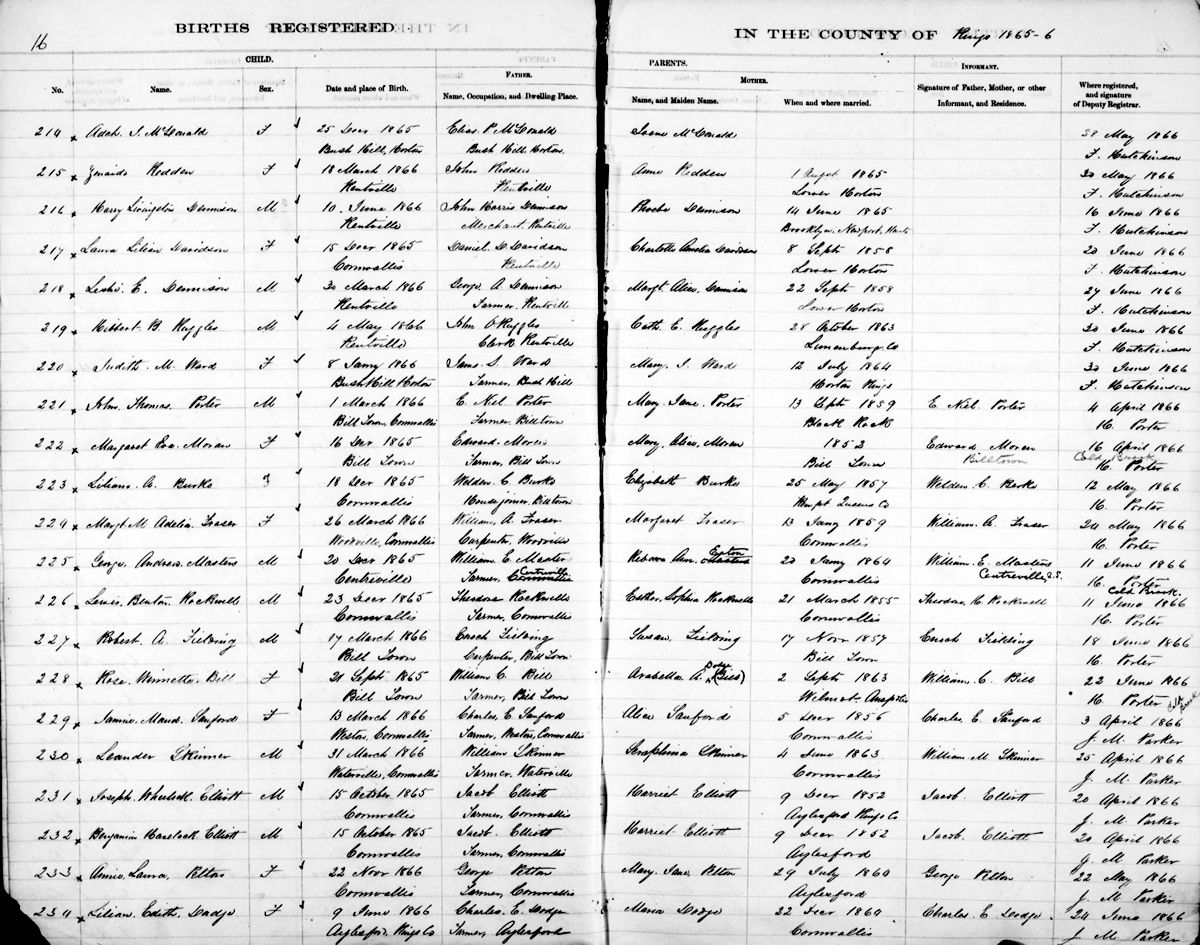 16
BIRTHS REGISTERED
IN THE COUNTY OF Kings 1865-6
CHILD.
PARENTS.
No. Name. Sex. Date and place of Birth.
FATHER.
Name, Occupation, and Dwelling Place.
MOTHER.
Name, and Maiden Name. When and where married.
INFORMANT.
Signature of Father, Mother, or other Informant, and Residence.
Where registered, and signature of Deputy Registrar.
214 Adah. I. McDonald F 25 Decr 1865 Elias. P. McDonald Irene McDonald 28 May 1866
Bush Hill, Horton Bush Hill, Horton. F. Hutchinson
215 Redden F 18 March 1866 John Redden Anne Redden 1 August 1865 30 May 1866
Kentville Kentville Lower Horton F. Hutchinson
216 Harry Livingston Dennison M 10 June 1866 John Harris Dennison Phoebe Dennison 14 June 1865 16 June 1866
Kentville Merchant, Kentville Brooklyn, Newport, Hants F. Hutchinson
217 Laura Lilian Davidson F 15 Decr 1865 Daniel D. Davidson Charlotte Amelia Davidson 8 Septr 1858 20 June 1866
Cornwallis Kentville Lower Horton F. Hutchinson
218 Leslie E. Dennison M 30 March 1866 George A Dennison Margt. Alice, Dennison 22 Sept 1858 27 June 1866
Kentville Farmer, Kentville Lower Horton F. Hutchinson
219 Hibbert B. Ruggles M 4 May 1866 John O Ruggles Cath. E. Ruggles 28 October 1863 30 June 1866
Kentville Clerk Kentville Lunenburg Co F. Hutchinson
220 Judith. M. Ward F 8 Jany 1866 James. S. Ward Mary. I. Ward 12 July 1864 30 June 1866
Bush Hill Horton Farmer, Bush Hill Horton Kings F. Hutchinson
221 John. Thomas. Porter M 1 March 1866 E. Nel. Porter Mary. Jane. Porter 13 Septr 1859 E. Nel. Porter 4 April 1866
Bill Town, Cornwallis Farmer, Billtown Black Rock H. Porter
222 Margaret Eva. Moran F 16 Decr 1865 Edward. Moran Mary, Alice, Moran 1852 Edward Moran 16 April 1866
Bill Town Farmer, Bill Town Bill Town Billtown Cold Brook H. Porter
223 Lilian. A. Burke F 18 Decr 1865 Welden. C. Burke Elizabeth Burke 25 May 1857 Welden C. Burke 12 May 1866
Cornwallis House joiner, Billtown Queens Co H. Porter
224 Margt. M. Adelia. Fraser F 26 March 1866 William, A. Fraser Margaret Fraser 13 Jany 1859 William. A. Fraser 24 May 1866
Woodville, Cornwallis Carpenter, Woodville Cornwallis H. Porter
225 George. Andrew. Masters M 20 Decr 1865 William E. Masters Rebecca Ann. Masters 20 Jany 1864 William. E. Masters 11 June 1866
Centreville Farmer, Cornwallis Centreville Cornwallis Centreville H. Porter
226 Lewis. Benton. Rockwell M 23 Decr 1865 Theodore Rockwell Esther, Sophia Rockwell 21 March 1855 Theodore, Rockwell Cold Brook. 11 June 1866
Cornwallis Farmer, Cornwallis Cornwallis H. Porter
227 Robert. A. Fielding M 17 March 1866 Enoch Fielding Susan, Fielding 17 Novr 1857 Enoch Fielding 18 June 1866
Bill Town Carpenter, Bill Town Bill Town H. Porter
228 Rosa. Minnetta. Bill F 21 Septr 1865 William. C. Bill Arabella. A. (Bill) 2 Septr 1863 William. C. Bill 22 June 1866
Bill Town Farmer, Bill Town Wilmot Annapolis H. Porter Cold Brook
229 Maud. Sanford F 13 March 1866 Charles. E. Sanford Alice Sanford 5 Decr 1856 Charles. E. Sanford 3 April 1866
Weston, Cornwallis Farmer, Weston, Cornwallis Cornwallis J. M. Parker
230 Leander Skinner M 31 March 1866 William Skinner Seraphina Skinner 4 June 1863 William M. Skinner 25 April 1866
Waterville, Cornwallis Farmer, Waterville Cornwallis J. M. Parker
231 Joseph. Elliott M 15 October 1865 Jacob Elliott Harriet Elliott 9 Decr 1852 Jacob. Elliott 20 April 1866
Cornwallis Farmer, Cornwallis Aylesford Kings Co J. M. Parker
232 Benjamin Havelock Elliott M 15 October 1865 Jacob. Elliott Harriet Elliott 9 Decr 1852 Jacob. Elliott 20 April 1866
Cornwallis Farmer, Cornwallis Aylesford J. M. Parker
233 Annie. Laura, Pelton F 22 Novr 1866 George Pelton Mary. Jane. Pelton 29 July 1860 George Pelton 22 May 1866
Cornwallis Farmer, Cornwallis Aylesford J. M. Parker
234 Lilian. Edith. Dodge F 9 June 1866 Charles. E. Dodge Maria Dodge 22 Decr 1864 Charles. E. Dodge 24 June 1866
Aylesford, Kings Co Farmer, Aylesford Cornwallis J. M. Parker